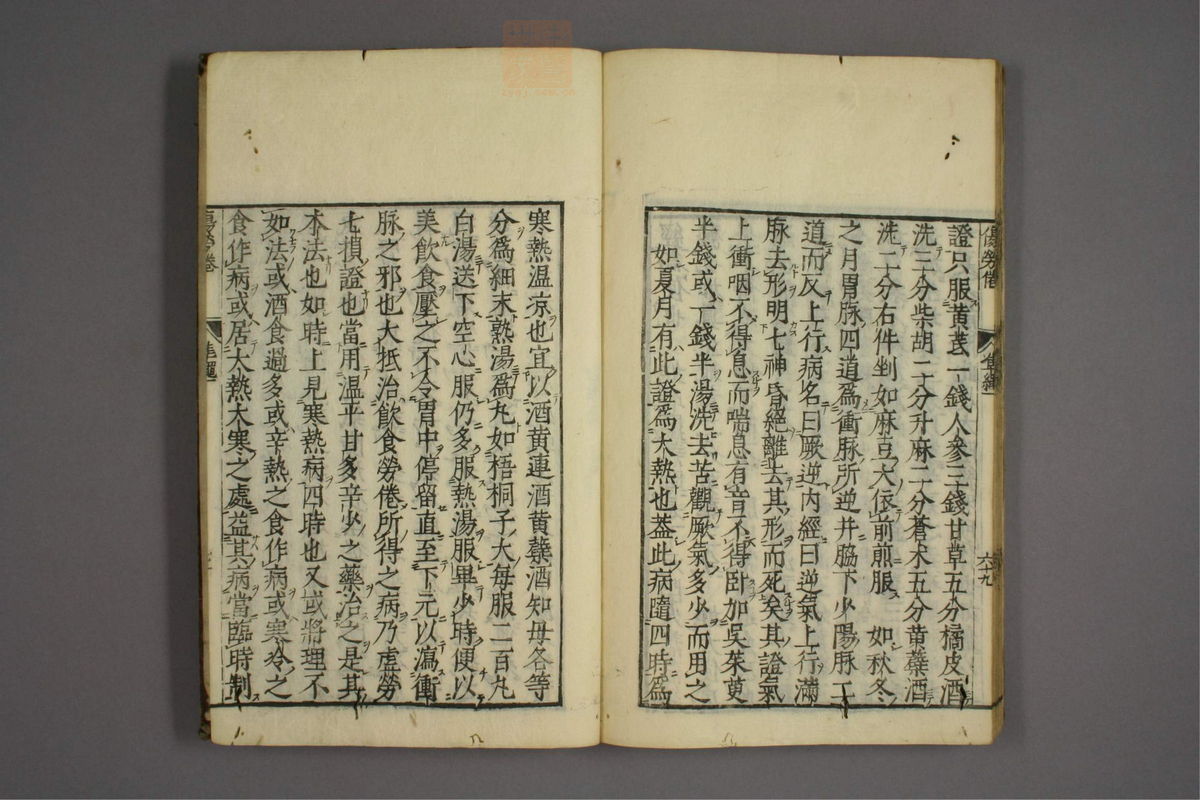 傷勞倦
六十九
證只服黃芪一錢人參三錢甘草五分橘皮酒
洗三分柴胡二分升麻二分蒼朮五分黃蘗酒
洗二分右件剉如麻豆大依前煎服 如秋冬
之月胃脉四道爲衝脉所逆并脇下少陽脉二
道而反上行病名曰厥逆內經曰逆氣上行滿
脉去形明七神昏絕離去其形而死矣其證氣
上衝咽不得息而喘息有音不得臥加吳茱萸
半錢或一錢半湯洗去苦觀厥氣多少而用之
如夏月有此證爲大熱也蓋此病隨四時爲
寒熱溫凉也宜以酒黃連酒黃蘗酒知母各等
分爲細末熟湯爲丸如梧桐子大每服二百丸
白湯送下空心服仍多服熱湯服畢少時便以
美飲食壓之不令胃中停留直至下元以瀉衝
脉之邪也大抵治飲食勞倦所得之病乃虛勞
七損證也當用溫平甘多辛少之藥治之是其
本法也如時上見寒熱病四時也又或將理不
如法或酒食過多或辛熱之食作病或寒冷之
食作病或居大熱大寒之處益其病當臨時制